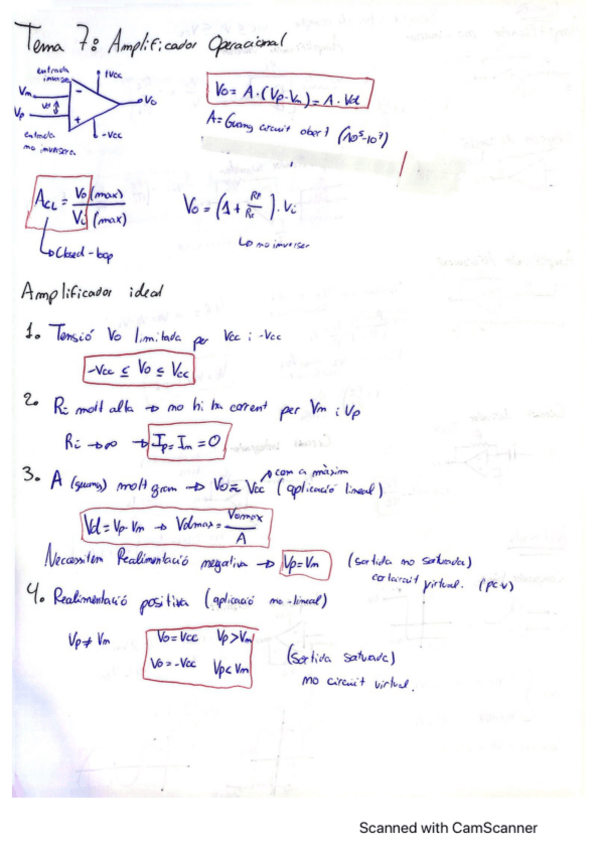 Tema 7: Amplificador Operacional
entrada inversora
+Vcc
Vm
Vd
Vo
Vp
-Vcc
entrada no inversora
Vo = A · (Vp-Vm) = A · Vd
A = Guany circuit obert (10^5-10^7)
ACL = Vo(max) / Vi(max)
Closed-loop
Vo = (1 + RF/R1) · Vi
no inversor
Amplificador ideal
1. Tensió Vo limitada per Vcc i -Vcc
-Vcc ≤ Vo ≤ Vcc
2. Ri molt alta → no hi ha corrent per Vm i Vp
Ri → ∞ → Ip = Im = 0
3. A (guany) molt gran → Vo ≈ Vcc (aplicació lineal)
com a màxim
Vd = Vp - Vm → Vdmax = Vomax / A
Necessitem Realimentació negativa → Vp = Vm (sortida no saturada)
curtcircuit virtual. (pcv)
4. Realimentació positiva (aplicació no-lineal)
Vp ≠ Vm
Vo = Vcc Vp > Vm
Vo = -Vcc Vp < Vm
(sortida saturada)
no circuit virtual.
Scanned with CamScanner